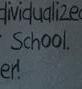 dividualized
School.
er!